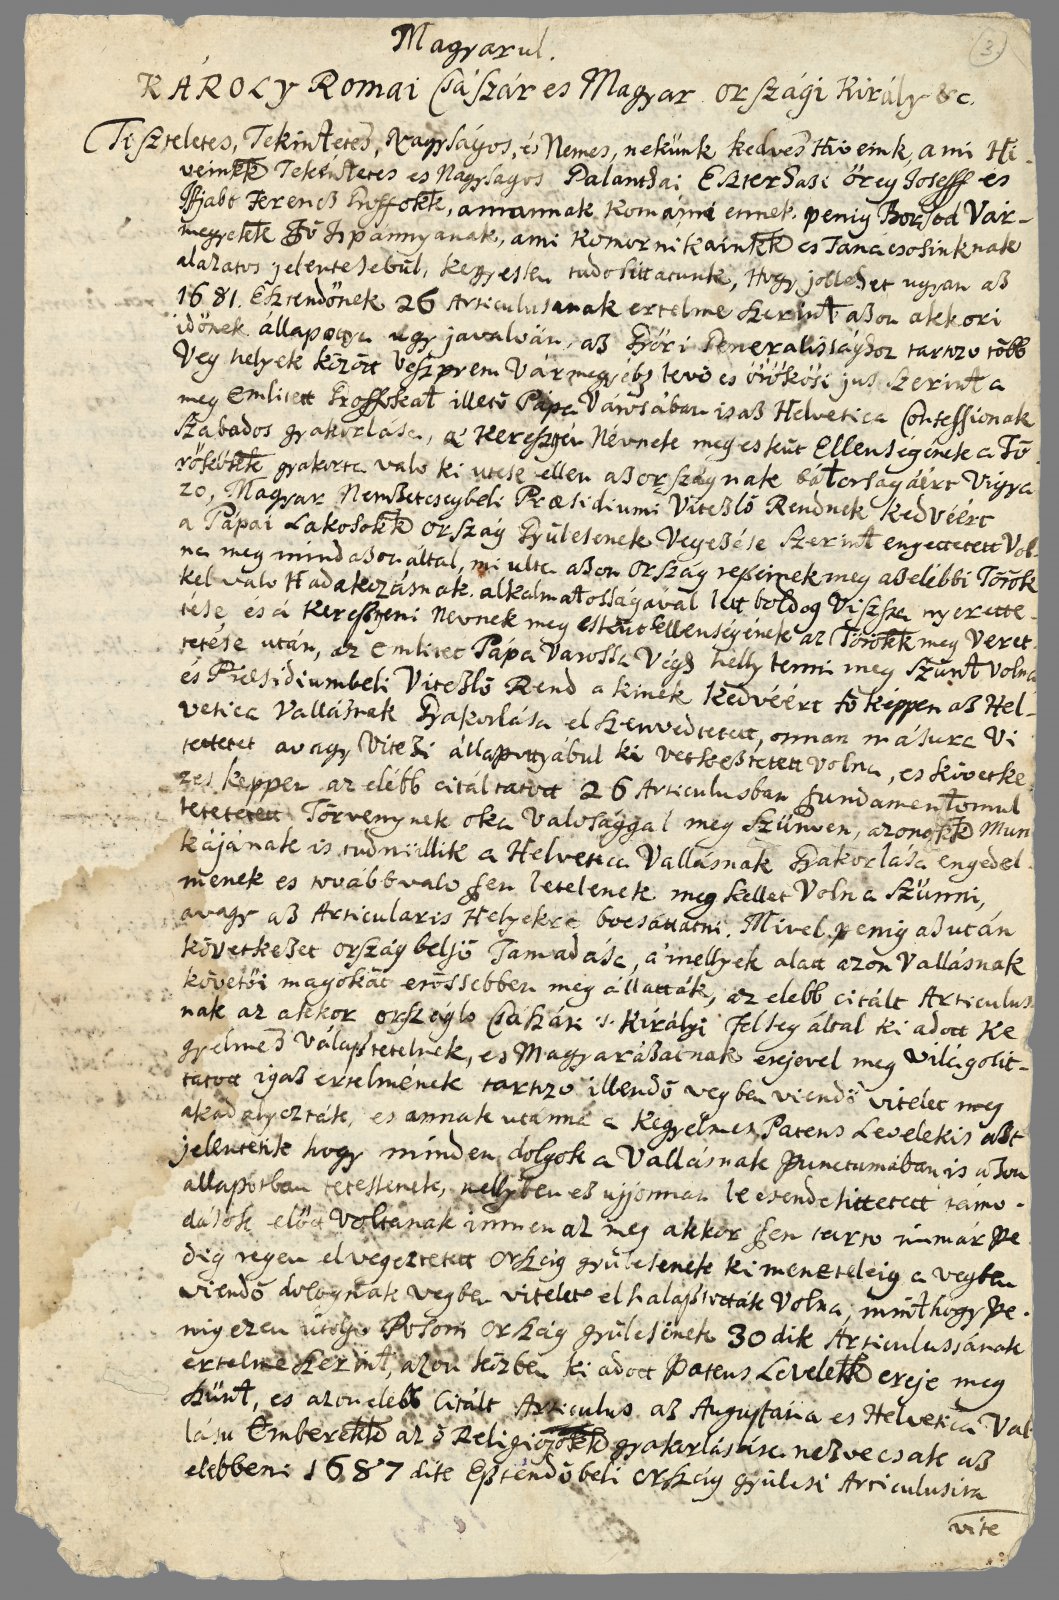 3.
Magyarul.
KÁROLY Romai Császár es Magyar országi Király &c.
Tiszteletes, Tekintetes, Nagyságos, és Nemes, nekünk kedves Hiveink, a mi Hi-
veinkk Tekéntetes es Nagyságos Galanthai Eszterhasi öreg Joseff es
Iffiabb Ferencz Groffokk, amannak Komáromi ennek penig Borsod Vár-
megyekk Fő Ispánnyanak, ami Komornikainkk es Tanácsosinknak
alazatos jelentésebül, kegyessen tudosittatunk, Hogy jollehet ugyan az
1681. Esztendőnek 26 Articulusanak ertelme szerint azon akkori
időnek állapottya ugy javalván, az Győri Generalissághoz tartozo több
Veg helyek között Veszprem Vármegyébz levő es örökössi jus szerint a
meg emlitett Groffokat illető Pápa Városában is az Helvetica Confessionak
szabados gyakorlása, a' Keresztyén Névnek meg eskűt Ellenségének a Tö-
rökökk gyakorta valo ki ütese ellen az országnak bátorságáért Vigya-
zo, Magyar Nemzetcsegbeli Præsidiumi Vitezlő Rendnek kedvéért
a Pápai Lakosokk ország Gyűlesenek Vegezése szerint engettetett Vol-
na meg mindazonáltal, mi ulta azon ország reszeinek meg az elébbi Török
kel valo Hadakozásnak alkalmatosságával lett boldog Viszsza nyerette-
tése, és a' Kereszteni Névnek meg eskűt Ellenségének az Törökk meg Veret-
tetése után, az emlitet Pápa Varossa Végh helly lenni meg Szűnt volna
és Præsidiumbeli Vitezlő Rend a kinek kedvéért fő képpen az Hel-
vetica Vallásnak Gyakorlása el szenvedtetett, onnan másuva Vi-
tettetet avagy Vitezi állapottyábul ki vetkeztetett volna, es következ-
zes keppen az elébb citáltatott 26 Articulusban fundamentomul
tetetetett Törvenynek oka Valosággal meg szűnven, azonokk Mun-
kájának is tudniillik a Helvetica Vallásnak Gyakorlása engedel-
menek es továbbvalo fen letelenek meg kellet Volna szünni,
avagy az Articularis Helyekre bocsáttatni. Mivel penig azután
következet ország belső Tamadása, a' mellyek alatt azon Vallásnak
követői magokat erőssebben meg állatták, az elebb citált Articulus-
nak az akkor országlo Császári s Királyi Felseg által ki adott Ke-
gyelmes Választetelnek, es Magyarázatnak erejevel meg világosit-
tatott igaz ertelmének tartozo illendő vegben viendő vitelet meg
akadalyozták, es annak utánna a Kegyelmes Patens Levelekis azt
jelentetik hogy minden dolgok a Vallásnak punctumában is azon
allapotban tetessenek, mellyben ez ujjonnan le csendesittetett támo-
dások előtt Voltanak innen az meg akkor fen tarto immár pe-
dig regen elvegeztetett ország gyülesenek ki meneteleig a vegben
viendő dolognak vegben vitelet el halasztották Volna, minthogy pe-
nig ezen utolso Posoni ország gyülesének 30dik Articulussának
ertelme szerint, azon közben ki adott Patens Levelekk ereje meg
szünt, es azon elebb Citált Articulus az Augustana es Helvetica Val-
lásu Emberekk az ő Religiojokk gyakorlására nezve csak az
elebbeni 1687 dik Esztendőbeli ország gyülesi Articulusira
vite